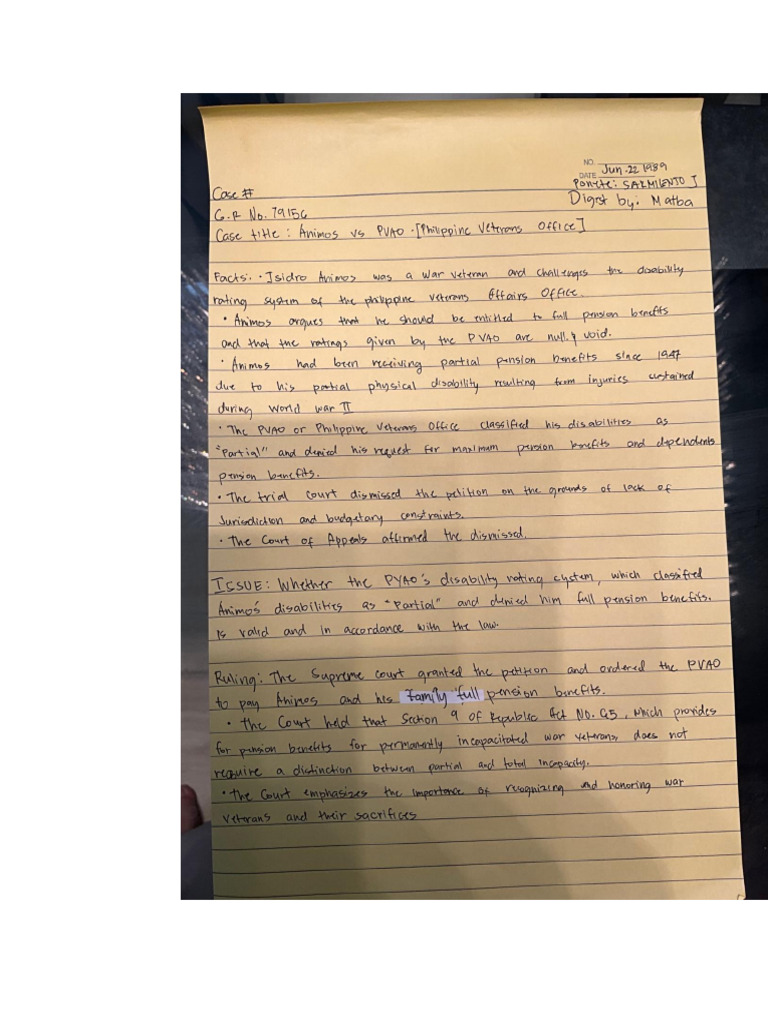 NO.
Jun. 22 1989
DATE
Case #
Ponente: SARMIENTO J
G.R No. 79156
Digest by: Matba
Case title: Animos vs PVAO.[Philippine Veterans Office]
Facts: • Isidro Animos was a war veteran and challenges the disability
rating system of the philippine veterans Affairs Office.
• Animos argues that he should be entitled to full pension benefits
and that the ratings given by the PVAO are null & void.
• Animos had been receiving partial pension benefits since 1947
due to his partial physical disability resulting from injuries sustained
during World war II
• The PVAO or Philippine Veterans Office classified his disabilities as
"Partial" and denied his request for maximum pension benefits and dependents
pension benefits.
• The trial court dismissed the petition on the grounds of lack of
Jurisdiction and budgetary constraints.
• The Court of Appeals affirmed the dismissed.
ISSUE: Whether the PVAO's disability rating system, which classified
Animo's disabilities as "Partial" and denied him full pension benefits.
Is valid and in accordance with the law.
Ruling: The Supreme court granted the petition and ordered the PVAO
to pay Animos and his Family full pension benefits.
• The Court held that Section 9 of Republic Act No. 65, which provides
for pension benefits for permanently incapacitated war veterans, does not
require a distinction between partial and total incapacity.
• The Court emphasizes the importance of recognizing and honoring war
veterans and their sacrifices